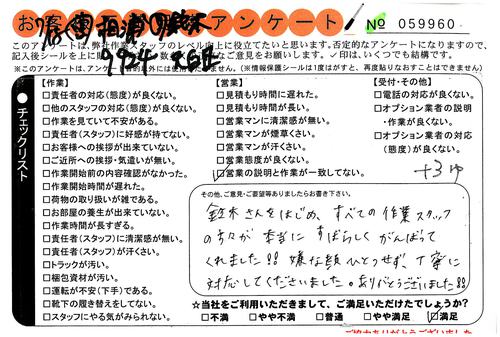 お客さまアンケート
№ 059960
このアンケートは、弊社作業スタッフのレベル向上に役立てたいと思います。否定的なアンケートになりますので、
記入後シールを上に貼
ご意見をお願いします。✓印は、いくつでも結構です。
(※情報保護シールは1度はがすと、再度貼りなおすことはできません)
チェックリスト
【作業】
□責任者の対応(態度)が良くない。
□他のスタッフの対応(態度)が良くない。
□作業を見ていて不安がある。
□責任者(スタッフ)に好感が持てない。
□お客様への挨拶が出来ていない。
□ご近所への挨拶・気遣いが無い。
□作業開始前の内容確認がなかった。
□作業開始時間が遅れた。
□荷物の取り扱いが雑である。
□お部屋の養生が出来ていない。
□作業時間が長すぎる。
□責任者(スタッフ)に清潔感が無い。
□責任者(スタッフ)が汗くさい。
□トラックが汚い。
□梱包資材が汚い。
□運転が不安(下手)である。
□靴下の履き替えをしてない。
□スタッフにやる気がみられない。
【営業】
□見積もり時間に遅れた。
□見積もり時間が長い。
□営業マンに清潔感が無い。
□営業マンが煙草くさい。
□営業マンが汗くさい。
□営業態度が良くない。
☑営業の説明と作業が一致してない。
【受付・その他】
□電話の対応が良くない。
□オプション業者の説明
・作業が良くない。
□オプション業者の対応
(態度)が良くない。
その他、ご意見・ご要望等ありましたらお書き下さい。
鈴木さんをはじめ、すべての作業スタッフ
の方々が本当にすばらしくがんばって
くれました!! 嫌な顔ひとつせず、丁寧に
対応してくださいました。ありがとうございました!!
☆当社をご利用いただきまして、ご満足いただけたでしょうか?
□不満 □やや不満 □普通 □やや満足 ☑満足
ご協力ありがとうございました